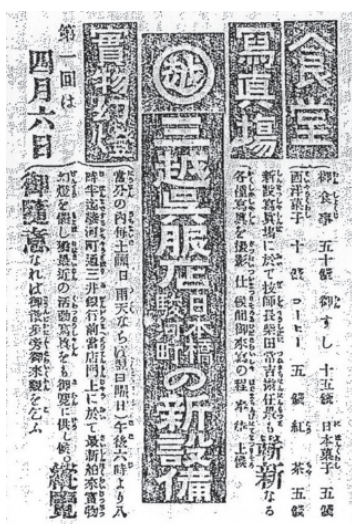 食堂
御食事 五十銭 御すし 十五銭 日本菓子 五銭
西洋菓子 十銭 コーヒー 五銭 紅茶 五銭
寫眞場
新設寫眞場に於て技師長柴田常吉擔任最も嶄新なる
各種寫眞を撮影仕候間御来寫の程奉待上候
越
三越呉服店日本橋駿河町の新設備
實物幻燈
當分の内毎土曜日(雨天ならば翌日曜日)午後六時より八
時半迄駿河町通三井銀行前當店門上に於て最新舶来實物
幻燈を催し猶最近の活動寫眞をも御覧に供し候。縦覧
第一回は
四月六日
御随意なれば御散歩旁御来観を乞ふ